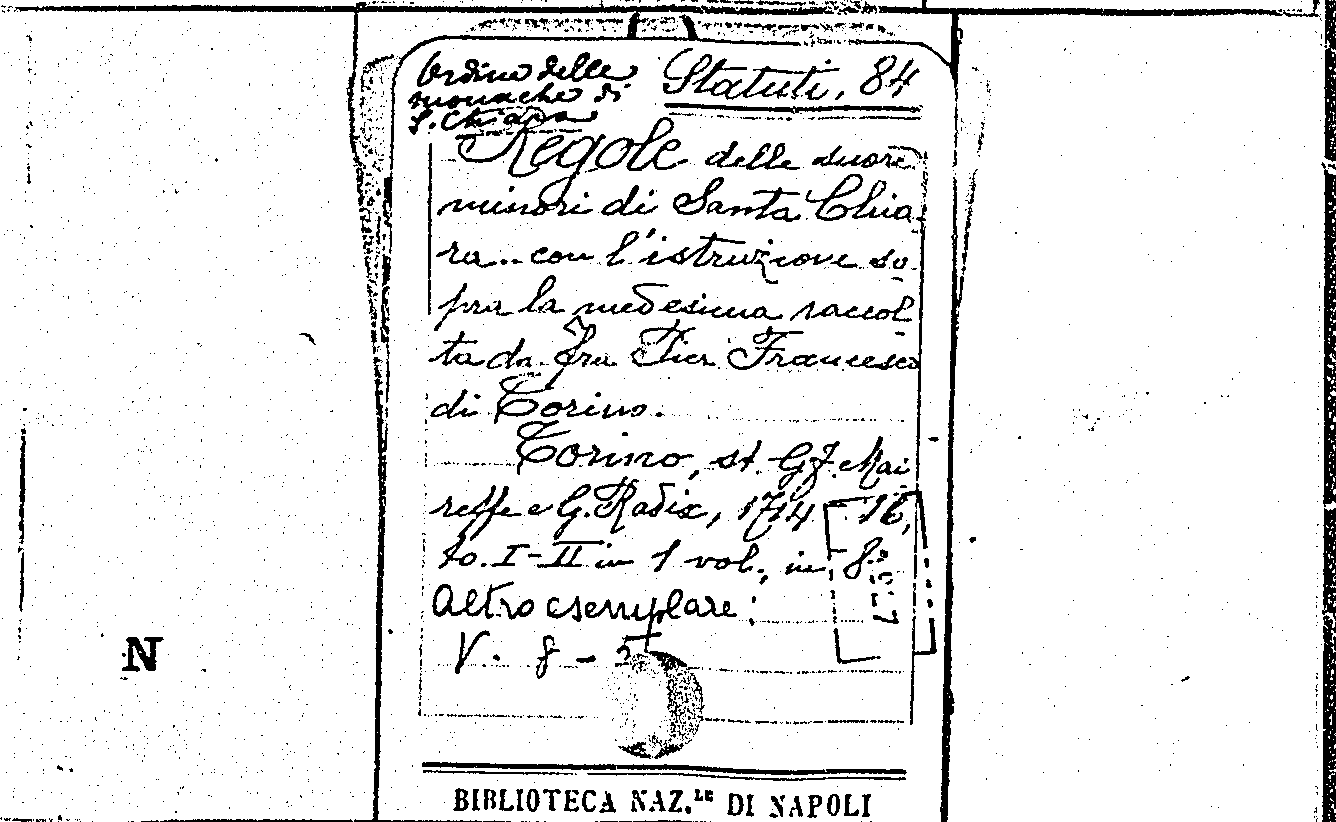 Ordine delle
monache di
S. Chiara
Statuti, 84
Regole delle suore
minori di Santa Chia-
ra... con l'istruzione so-
pra la medesima raccol-
ta da fra Pier Francesco
di Torino.
Torino, st. G. J. Mai
resse e G. Radix, 1714-16,
to. I-II in 1 vol., in 8.°
Altro esemplare:
V. 8 - 5
N
BIBLIOTECA NAZ.LE DI NAPOLI